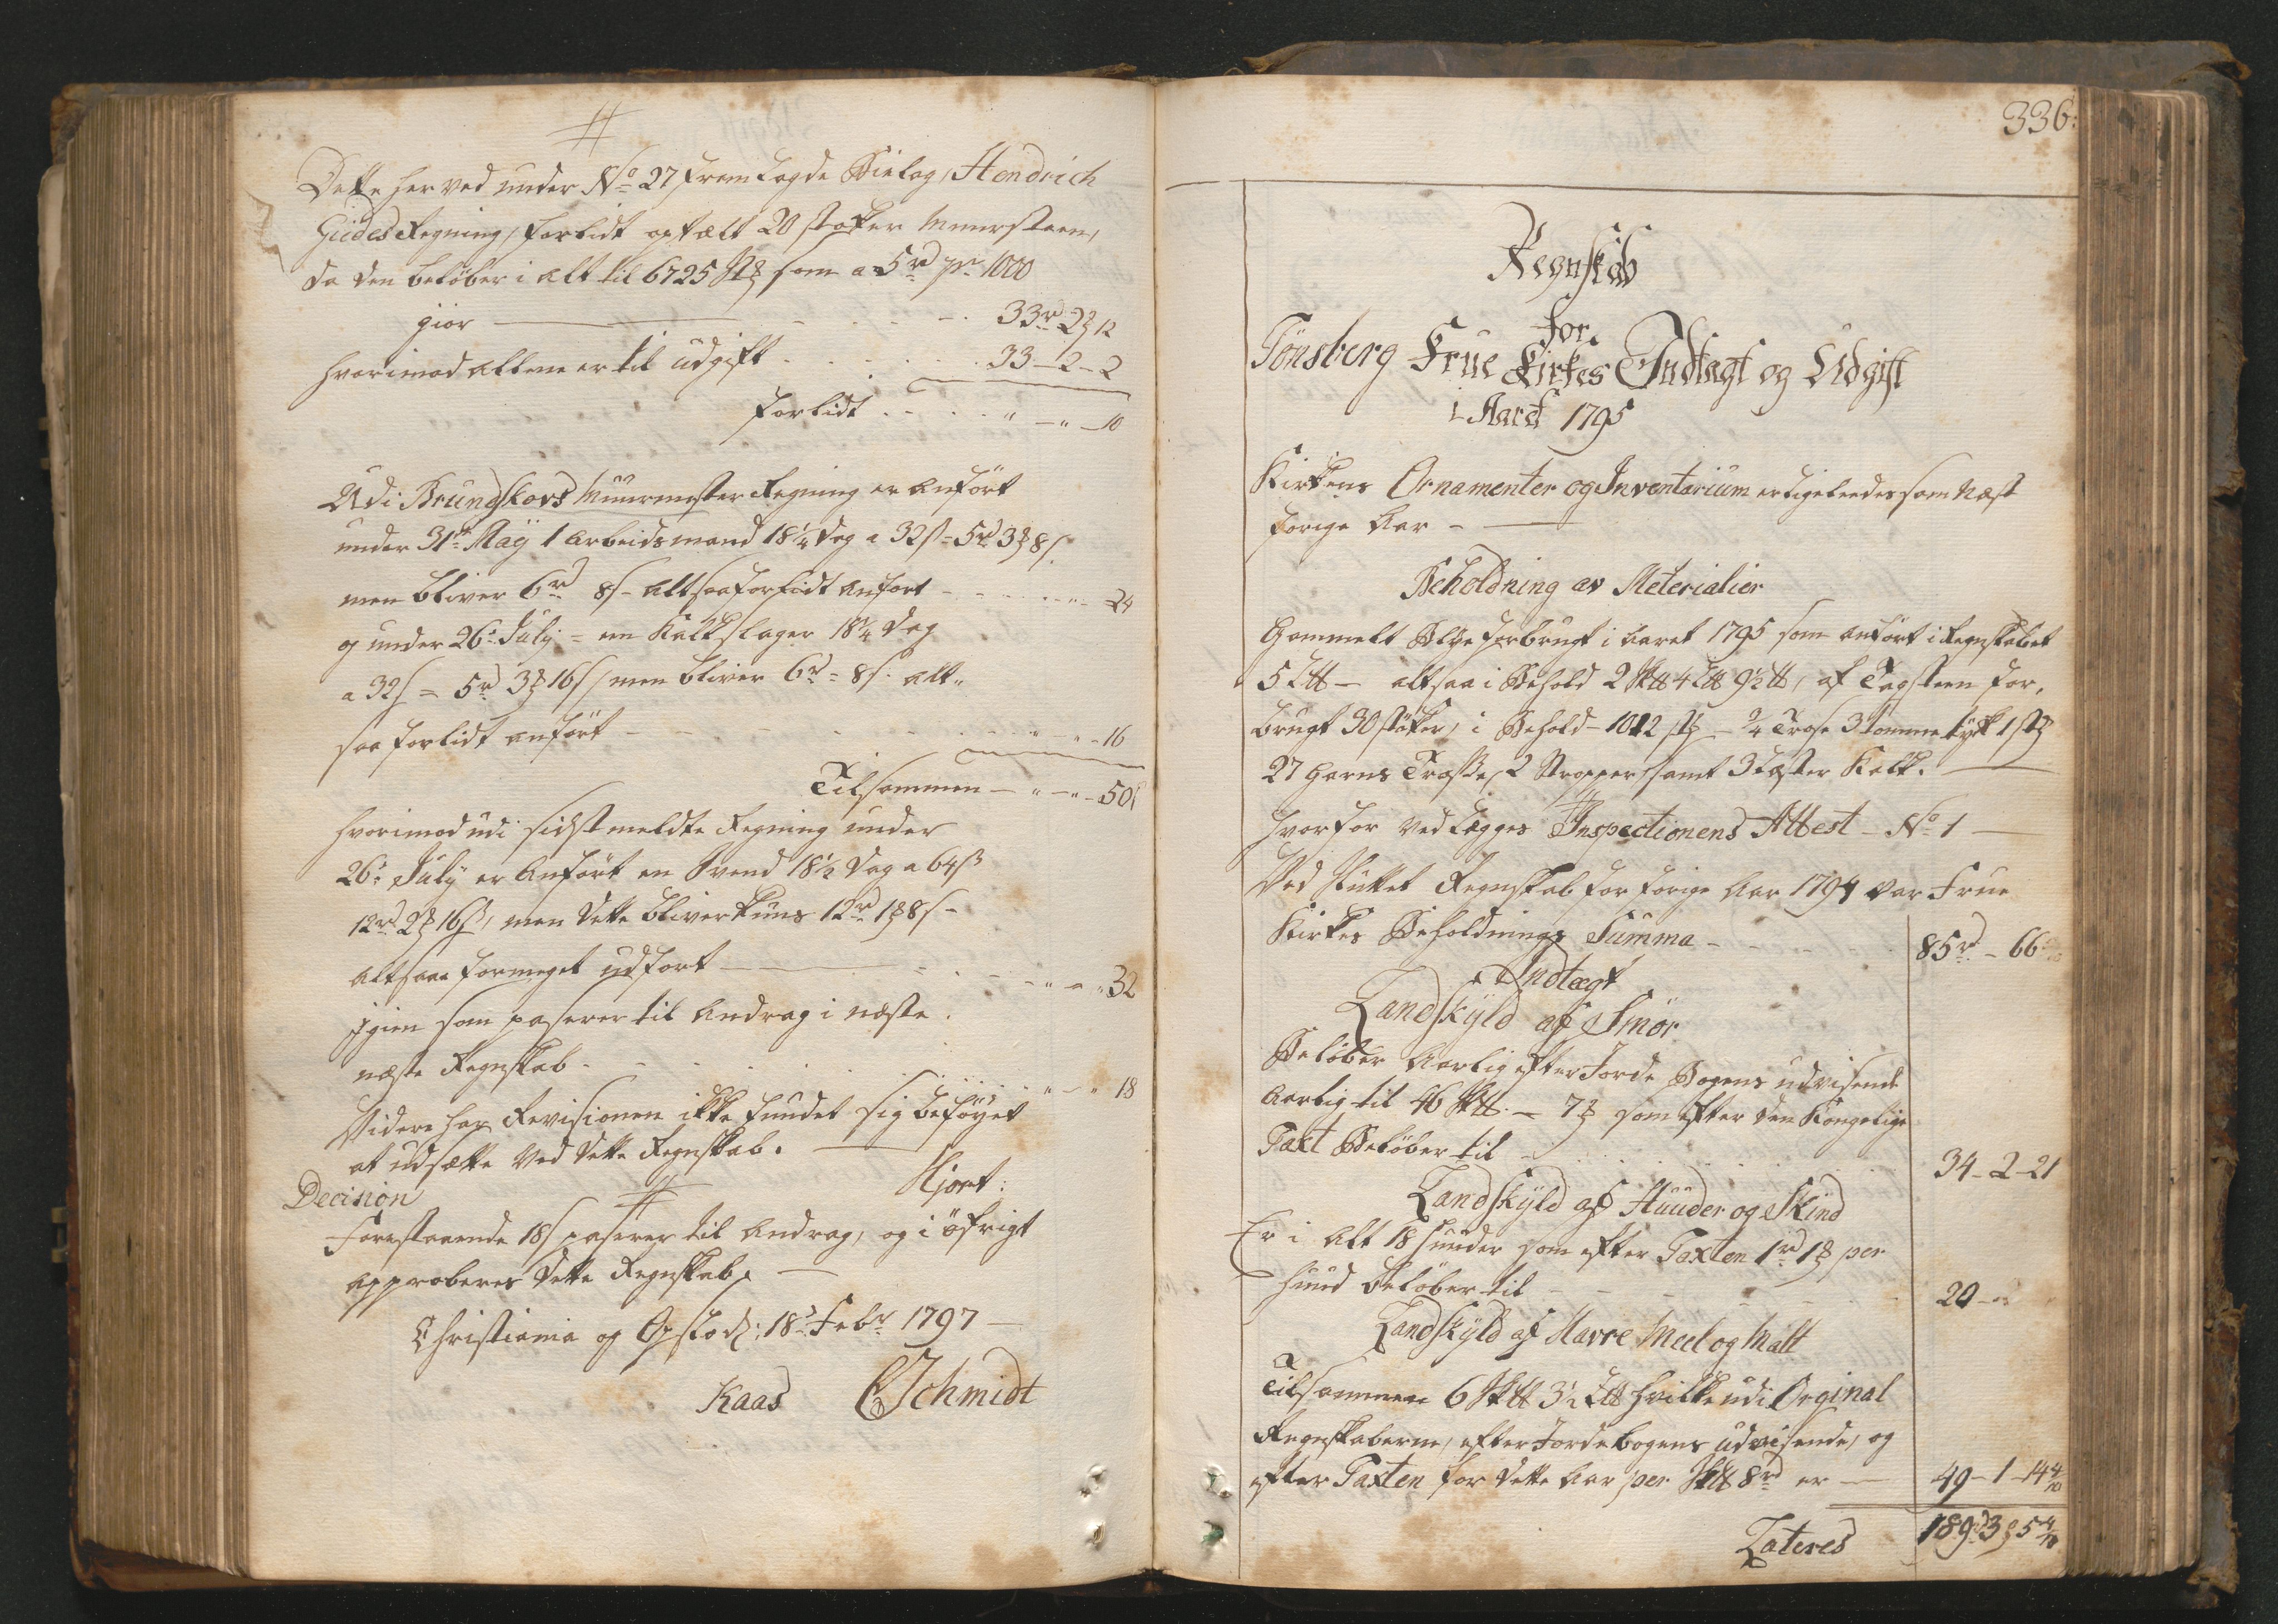 Dette her ved under No 27 fremlagde Bielag, Hendrich
Giedes Regning, forlidt optælt 20 støcker Muursteen,
da den beløber i alt til 6725 St: som a 5rd pr 1000
giør 33rd 2 12
hvorimod allene er til udgift 33-2-2
forlidt " - " - 10
Udi Brundskovs Muurmester Regning er anført
under 31te Maÿ 1 Arbeidsmand 18 1/4 dag a 32s = 5rd 3 8s
men bliver 6rd 8s altsaa forlidt anført - 24
og under 26de Julÿ = en Kalkslager 18 1/4 dag
a 32s = 5rd 3 16s men bliver 6rd = 8s alt-
saa forlidt anført " - " - 16
Tilsammen - " - " - 50s
hvorimod udi sidstmeldte Regning under
26de Julÿ er anført en Svend 18 1/2 dag a 64s
12rd 2 16s, men dette bliver kuns 12rd 1 8s -
altsaa formeget udført - " - " 32
igien som paserer til Andrag i næste
næste Regnskab " - " 18
Videre har Revisionen ikke fundet sig beføyet
at udsætte ved dette Regnskab.
Hjort:
Decision
Forestaaende 18s paserer til Andrag, og i øfrigt
approberes dette Regnskab,
Christiania og Opslod: 18de Febr 1797
Kaas Schmidt
336:
Regnskab
for
Tønsberg Frue Kirkes Indtægt og Udgift
i Aaret 1795
Kirkens Ornamenter og Inventarium er ligeledes som næst
forige Aar -
Beholdning av Meterialier
Gammelt Blye forbrugt i Aaret 1795 som anført i Regnskabet
5 L℔ - altsaa i Behold 2 Sk℔ 4 L℔ 9 1/2 ℔, af Tagsteen for-
brugt 30 støcker, i Behold - 1012 st - 1/4 Trose 3 tomme tyck 1 st
27 Garns Trosse, 2 Stropper samt 3 Læster Kalk.
hvorfor vedlægges Inspectionens Attest No 1
Ved sluttet Regnskab for forige Aar 1794 var Frue
Kirkes Beholdnings Summa 85rd - 66
Indtægt
Landskÿld af Smør
Beløber Aarlig efter Jorde Bogens udvisende
Aarlig til 46 - 7 som efter den Kongelige
Taxt Beløber til 34-2-21
Landskÿld af Huuder og Skind
Er i Alt 18 huuder som efter Taxten 1rd 1 per
huud beløber til 20 -
Landskÿld af Havre Meel og Malt
Tilsammen 6 Sk℔ 3 1/2 L℔ hvilke udi Orginal
Regnskaberne, efter Jordebogens udvisende, og
efter Taxten for dette Aar per Sk℔ 8rd er 49-1-14 4/10
Lateres 189 3 5 4/10